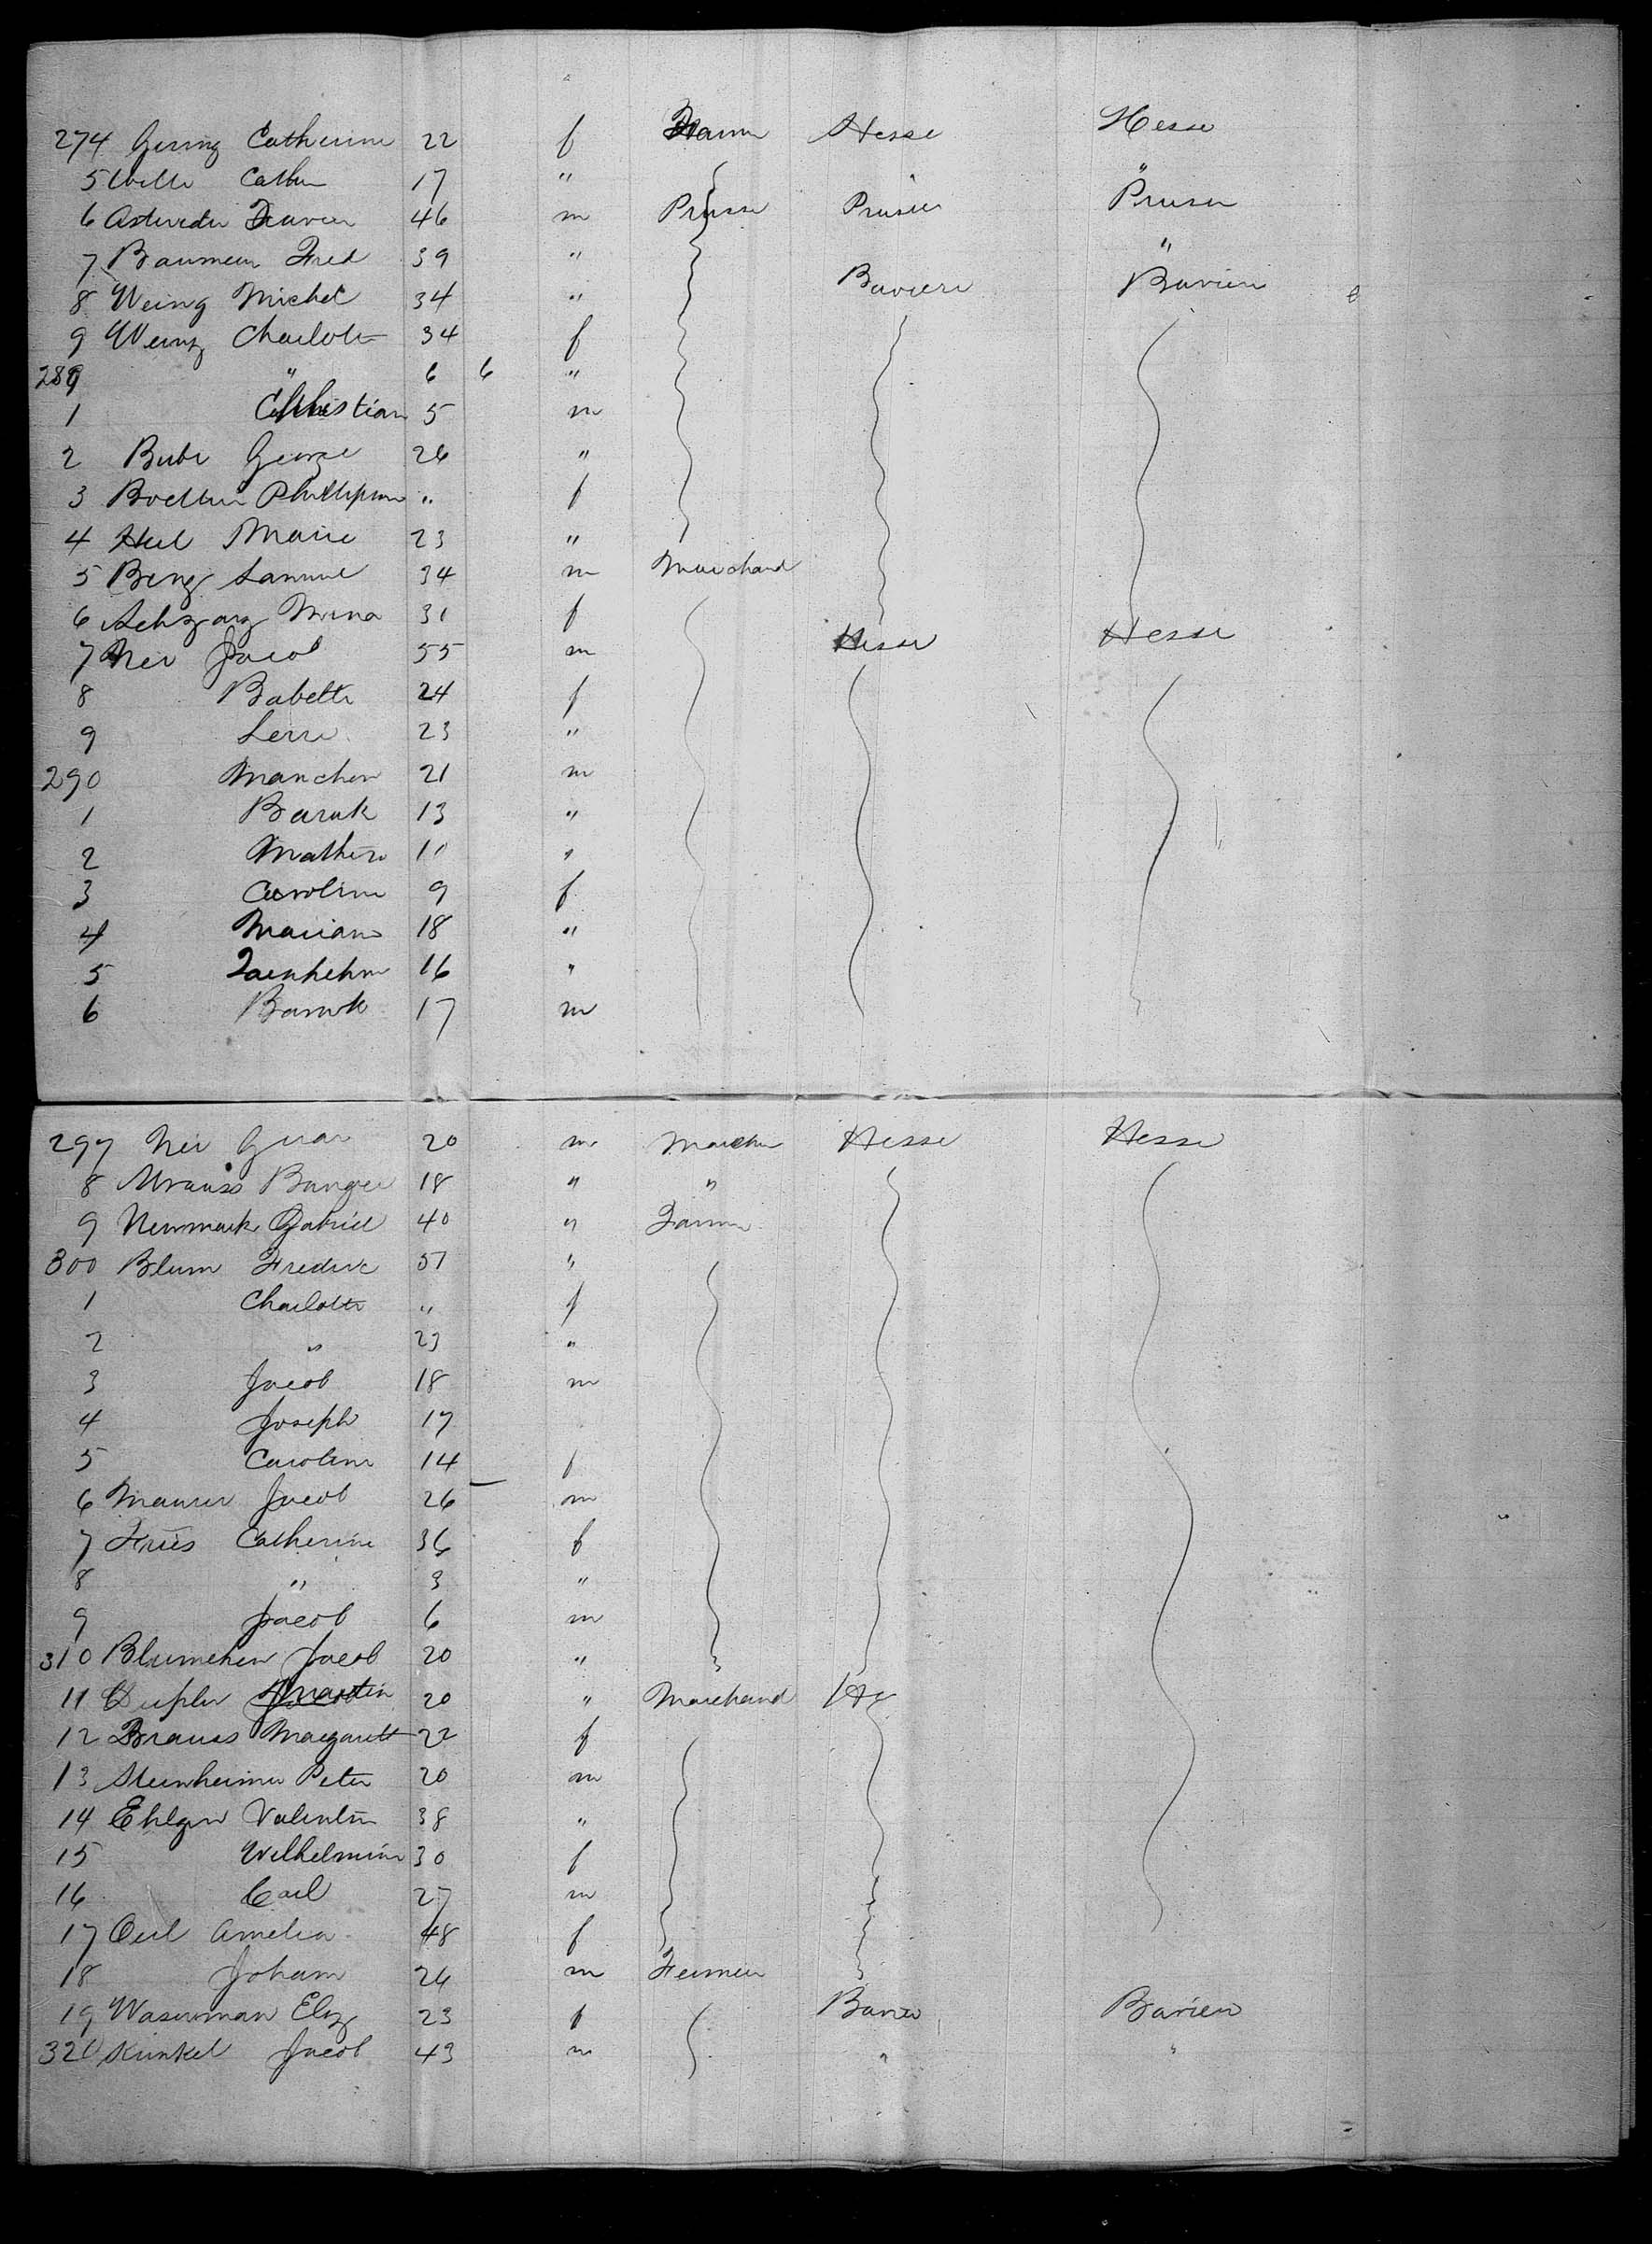 274 Gering Catherine 22 f Farm Hesse Hesse
5 Wille Cathn 17 " "
6 Xavier 46 m Prusse Prusse Prusse
7 Baumeur Fred 39 " "
8 Weing Michel 34 " Baviere Baviere
9 Weing Charlotte 34 f
280 " 6 6 "
1 Christian 5 m
2 Bube George 26 "
3 Boellin Phillipine " f
4 Heil Marie 23 "
5 Being Samuel 34 m Marchand
6 Mina 31 f
7 Nei Jacob 55 m Hesse Hesse
8 Babette 24 f
9 23 "
290 Manchen 21 m
1 Baruk 13 "
2 10 "
3 Caroline 9 f
4 Mariane 18 "
5 16 "
6 Baruk 17 m
297 Nei 20 m Marchan Hesse Hesse
8 Strauss 18 " "
9 Newmark Gabriel 40 " Farmer
300 Blum Frederic 51 "
1 Charlotte " f
2 " 23 "
3 Jacob 18 m
4 Joseph 17
5 Caroline 14 f
6 Maurer Jacob 26 m
7 Fries Catherine 36 f
8 " 3 "
9 Jacob 6 m
310 Blumchen Jacob 20 "
11 Martin 20 " Marchand He
12 Brauss Margarett 22 f
13 Steinheimer Peter 20 m
14 Ehlgen Valentin 38 "
15 Wilhelmine 30 f
16 Carl 27 m
17 Oeil Amelia 48 f
18 Johann 26 m Fermier
19 Waserman Eliz 23 f Bavier Bavier
320 Kunkel Jacob 43 m " "